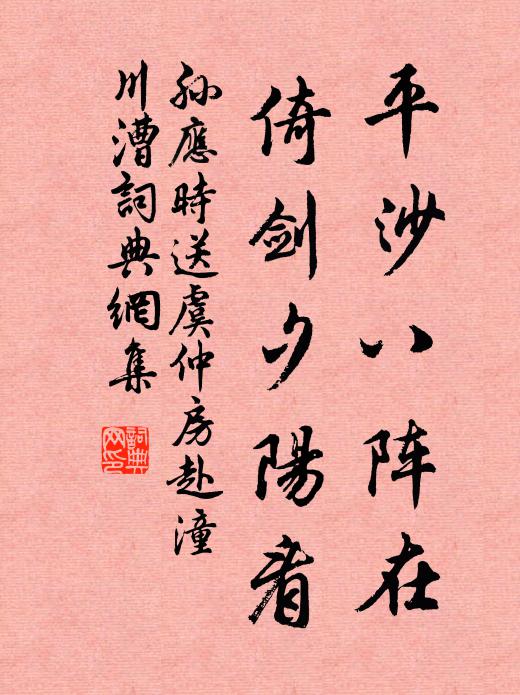 平沙八阵在
倚劍夕陽看
孙應時送虞仲房赴潼
川漕詞典網集
詞典
网印